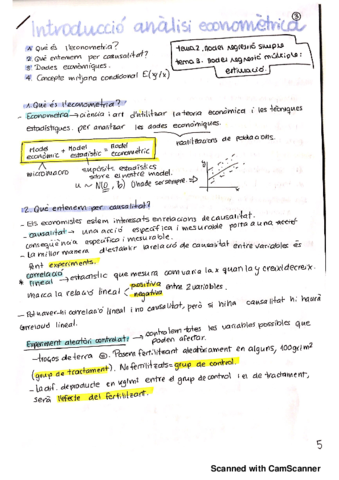 Introducció anàlisi economètrica
1. Què és l'econometria?
2. Què entenem per causalitat?
3. Dades econòmiques.
4. Concepte mitjana condicional E(y/x)
tema 2. Model regressió simple
tema 3. Model regressió múltiple:
estimació.
1. Què és l'econometria?
- Econometria → ciència i art d'utilitzar la teoria econòmica i les tècniques
estadístiques per analitzar les dades econòmiques.
Model econòmic + Model estadístic = Model economètric
micro/macro
supòsits estadístics
sobre el nostre model.
2. Què entenem per causalitat?
- Els economistes estem interessats en relacions de causalitat.
- causalitat → una acció específica i mesurable porta a una
conseqüència específica i mesurable.
- La millor manera d'establir la relació de causalitat entre variables és
fent experiments.
* correlació lineal → estadístic que mesura com varia la x quan la y creix/decreix.
marca la relació lineal positiva negativa entre 2 variables.
- Pot haver-hi correlació lineal i no causalitat, però si hi ha causalitat hi haurà
correlació lineal.
Experiment aleatori controlat: → controlem totes les variables possibles que
poden afectar.
- trossos de terra. Posem fertilitzant aleatòriament en alguns, 100gr/m²
(grup de tractament). No fertilitzats = grup de control.
- La dif. de producte en kg/m² entre el grup de control i el de tractament,
serà l'efecte del fertilitzant.
5
Scanned with CamScanner